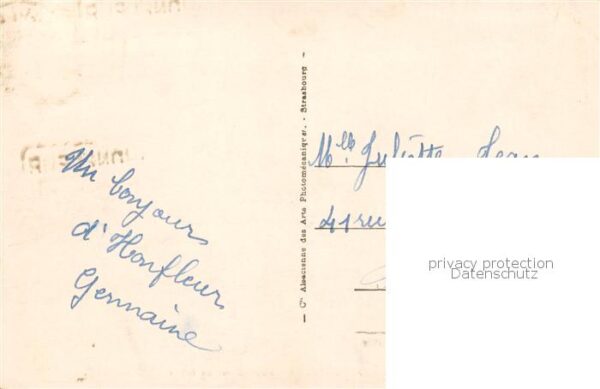 Un bonjour
d'Honfleur
Germaine
— Cie Alsacienne des Arts Photomécaniques. - Strasbourg —
Mlle Juliette Jean
41 ru
privacy protection
Datenschutz